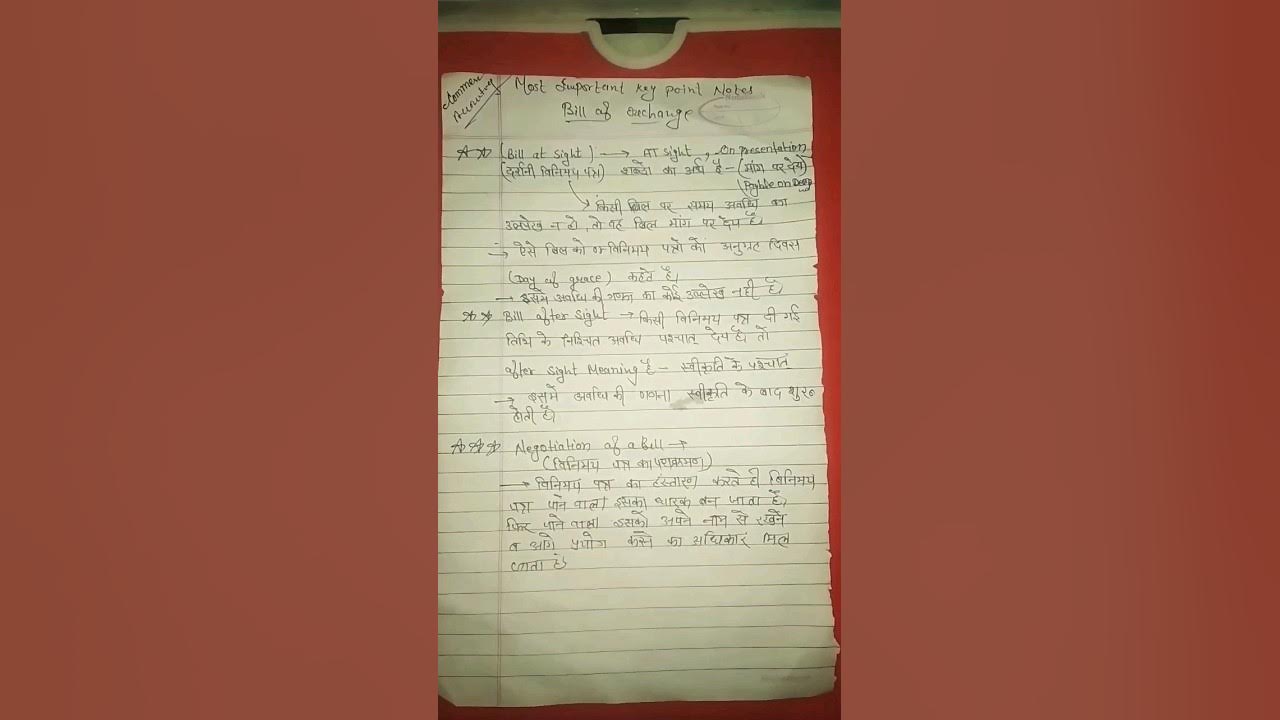 Commerce
Accounting
Most Important Key point Notes
Bill of Exchange
(Bill at Sight) → AT Sight, On presentation
(दर्शनी विनिमय पत्र) शब्दों का अर्थ है - (मांग पर देय)
(Payble on
किसी बिल पर समय अवधि का
उल्लेख न हो, तो वह बिल मांग पर देय है।
→ ऐसे बिल को विनिमय पत्रों को अनुग्रह दिवस
(Day of grace) कहते है।
→ इसमें अवधि की गणना का कोई उल्लेख नहीं है।
Bill after Sight → किसी विनिमय पत्र दी गई
तिथि के निश्चित अवधि पश्चात् देय है। तो
after sight Meaning है - स्वीकृति के पश्चात्
→ इसमें अवधि की गणना स्वीकृति के बाद शुरु
होती है।
Negotiation of a Bill →
(विनिमय पत्र का परक्रामण)
→ विनिमय पत्र का हंस्तारण करते ही विनिमय
पत्र पाने वाला इसका धारक बन जाता है,
फिर पाने वाला इसको अपने नाम से रखने
व आगे प्रयोग करने का अधिकार मिल
जाता है।